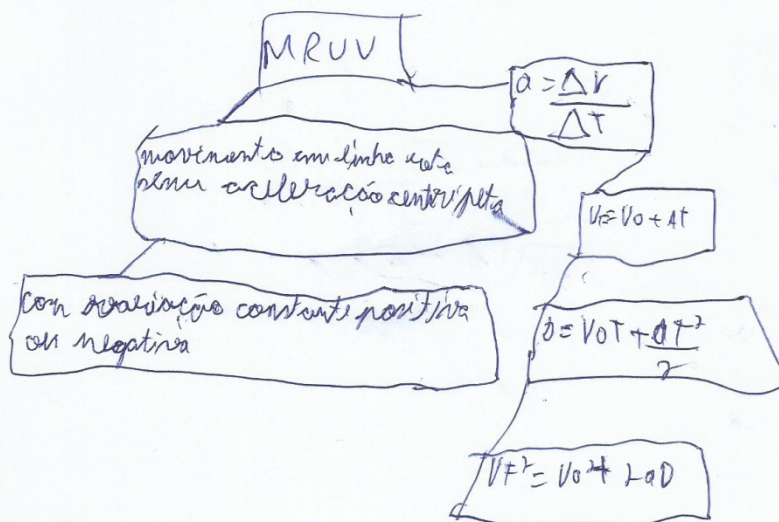 MRUV
a = ΔV
ΔT
movimento em linha reta
sem aceleração centripeta
VF = Vo + AT
com variação constante positiva
ou negativa
D = VoT + aT²
2
VF² = Vo² + 2aD